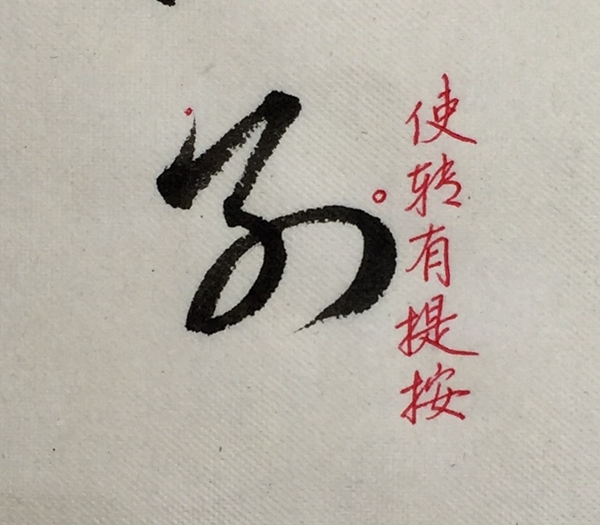 使转有提按